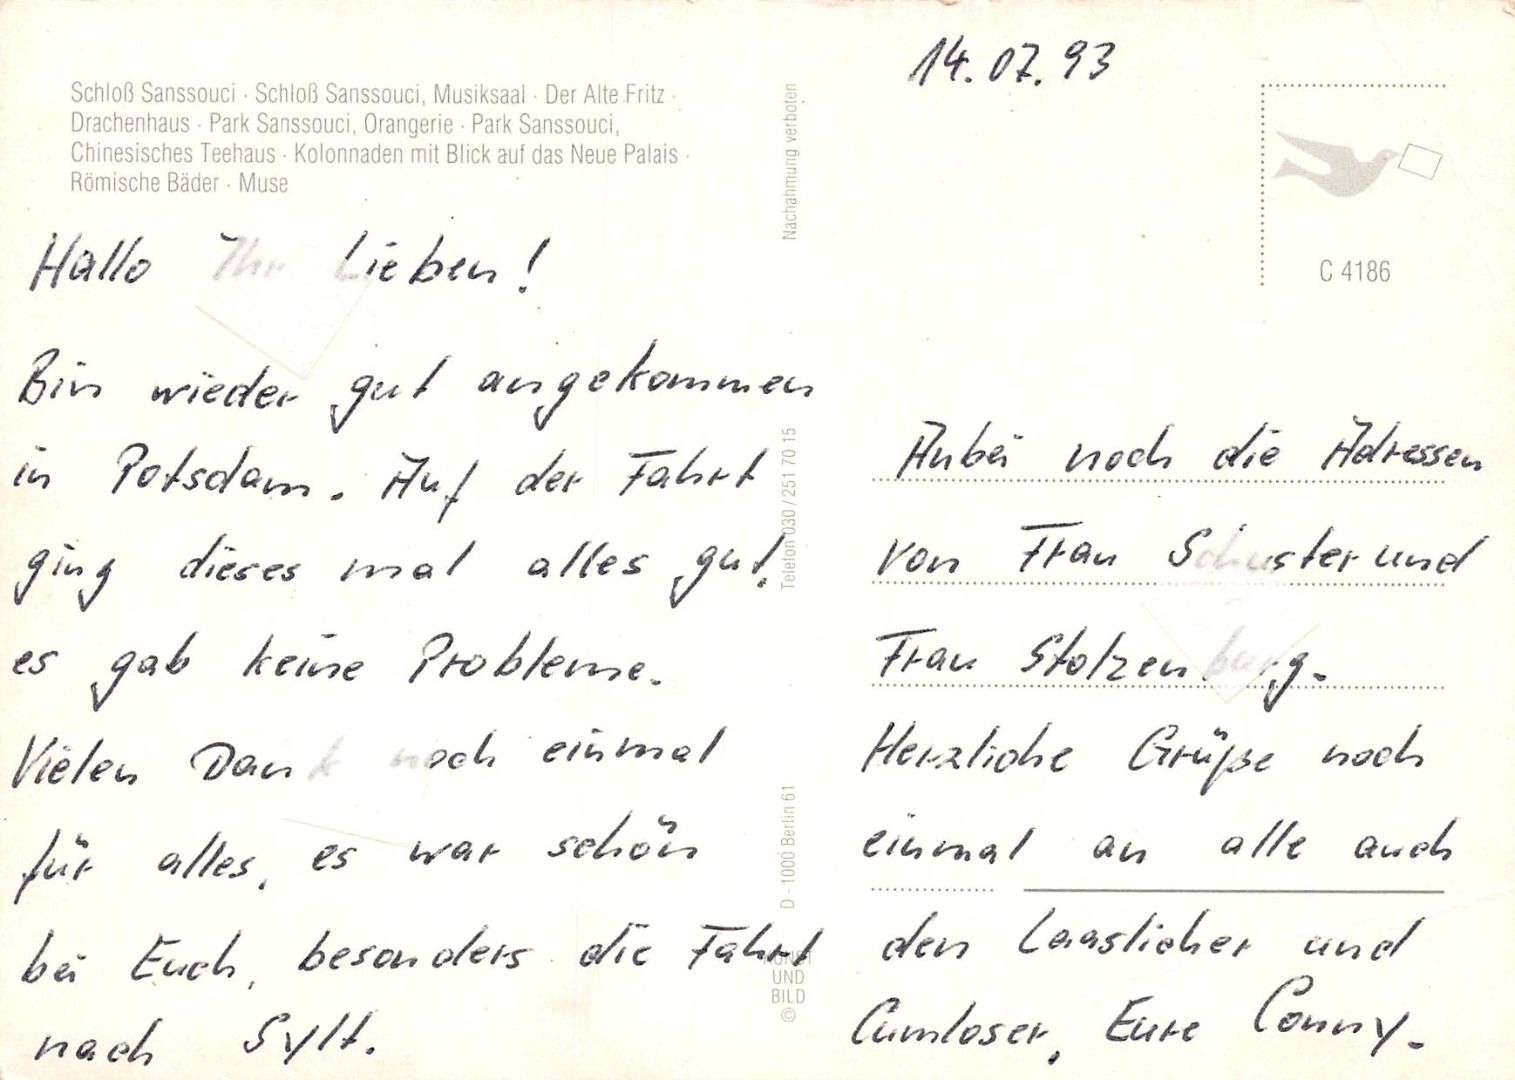 Schloß Sanssouci · Schloß Sanssouci, Musiksaal · Der Alte Fritz ·
Drachenhaus · Park Sanssouci, Orangerie · Park Sanssouci,
Chinesisches Teehaus · Kolonnaden mit Blick auf das Neue Palais ·
Römische Bäder · Muse
Hallo Ihr Lieben!
Bin wieder gut angekommen
in Potsdam. Auf der Fahrt
ging dieses mal alles gut,
es gab keine Probleme.
Vielen Dank noch einmal
für alles, es war schön
bei Euch, besonders die Fahrt
nach Sylt.
Nachahmung verboten
Telefon 030 / 251 70 15
D - 1000 Berlin 61
KUNST
UND
BILD
©
14.07.93
C 4186
Anbei noch die Adressen
von Frau Schuster und
Frau Stolzenburg.
Herzliche Grüße noch
einmal an alle auch
den Laaslicher und
Cumloser, Eure Conny.